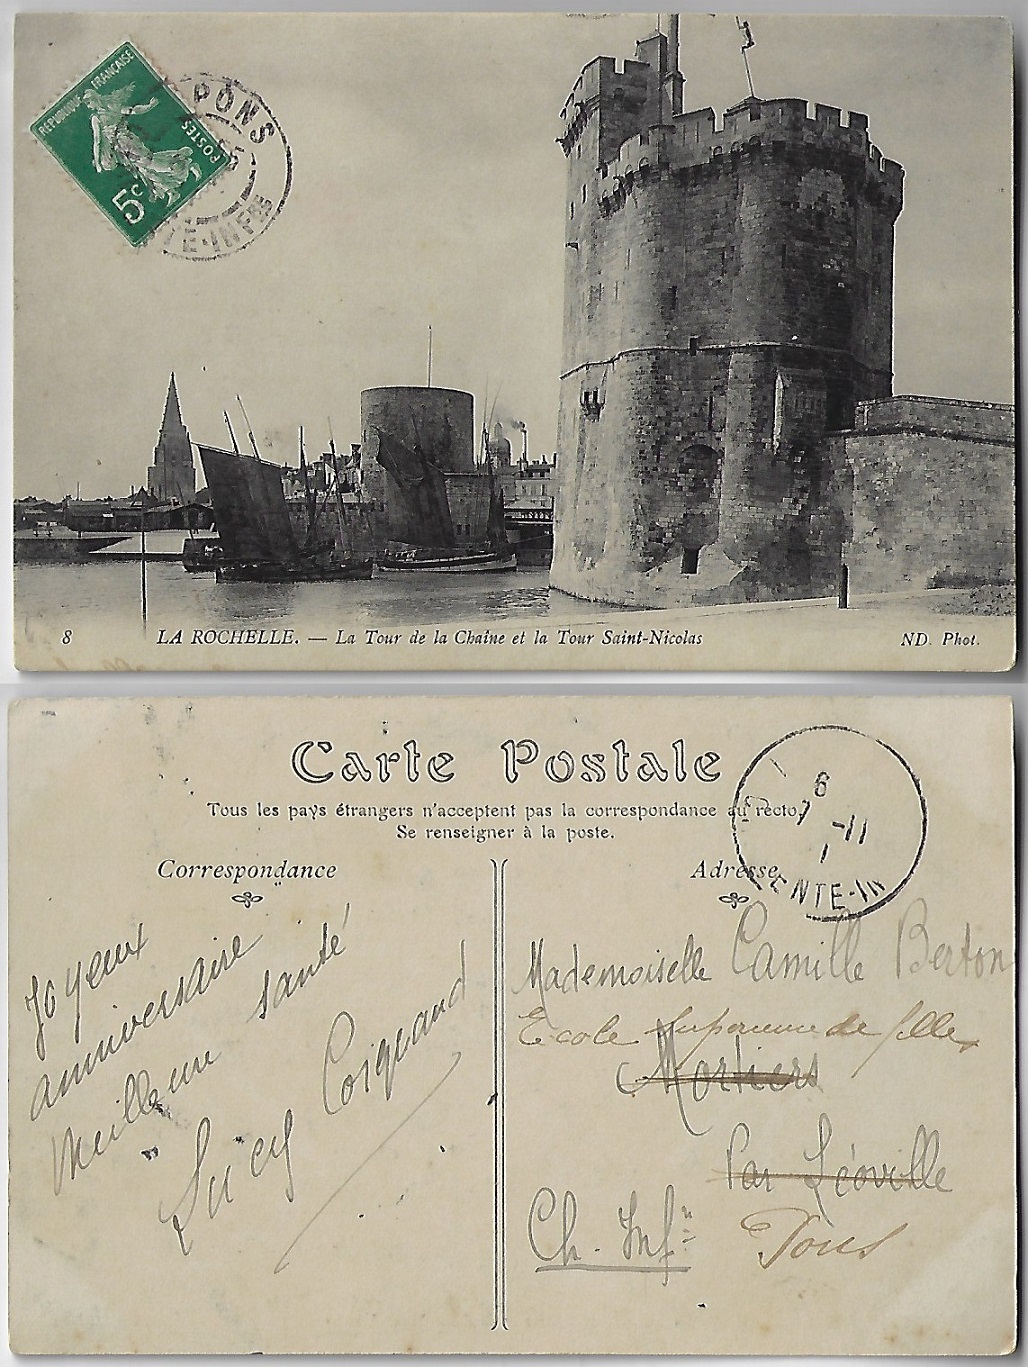 REPUBLIQUE FRANÇAISE
POSTES
5c
PONS
TE-INFRE
8 LA ROCHELLE. — La Tour de la Chaîne et la Tour Saint-Nicolas ND. Phot.
Carte Postale
Tous les pays étrangers n'acceptent pas la correspondance au recto.
Se renseigner à la poste.
Correspondance
Adresse
6
7 -11
1
ENTE-IN
Joyeux
anniversaire
Meilleure santé
Lucy Coignand
Mademoiselle Camille Berton
Ecole Supérieure de filles
Mortiers
Par Léoville
Ch. Infre
Pons